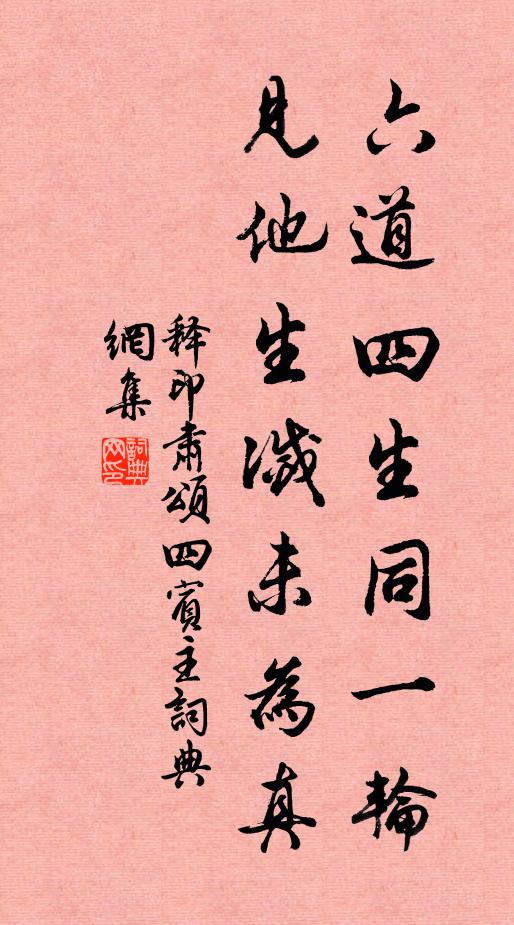 六道四生同一輪
見他生滅未為真
释印肃頌四賓主詞典
網集
詞典網印